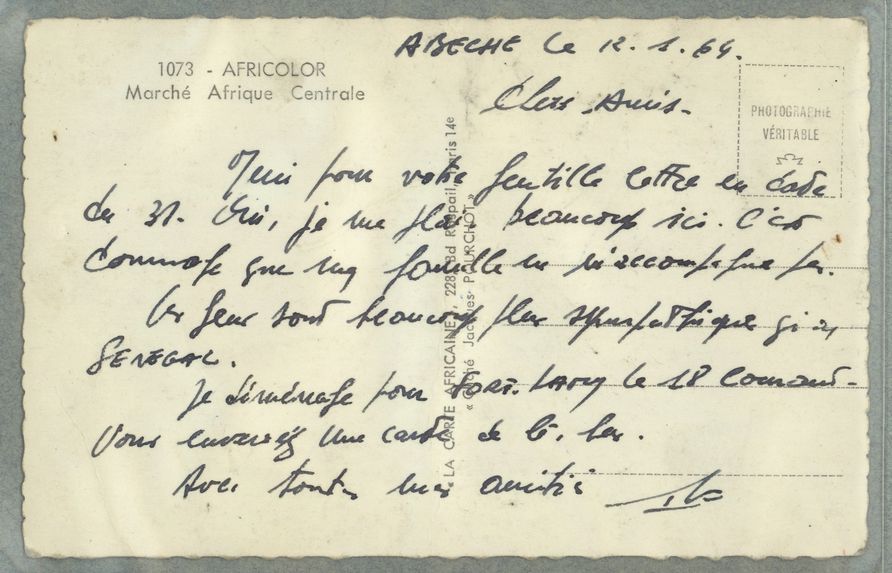 ABECHE le 12.1.64.
1073 - AFRICOLOR
Marché Afrique Centrale
Chers Amis -
PHOTOGRAPHIE
VÉRITABLE
Merci pour votre gentille lettre en date
du 31. Oui, je me plais beaucoup ici. C'est
dommage que ma famille ne m'accompagne pas.
Les gens sont beaucoup plus sympathiques qu'au
SENEGAL.
Je déménage pour FORT-LAMY le 18 courant -
Vous enverrai une carte de là-bas.
Avec toutes mes amitiés
LA CARTE AFRICAINE, 228, Bd Raspail, Paris 14e
« Cliché Jacques POURCHOT »